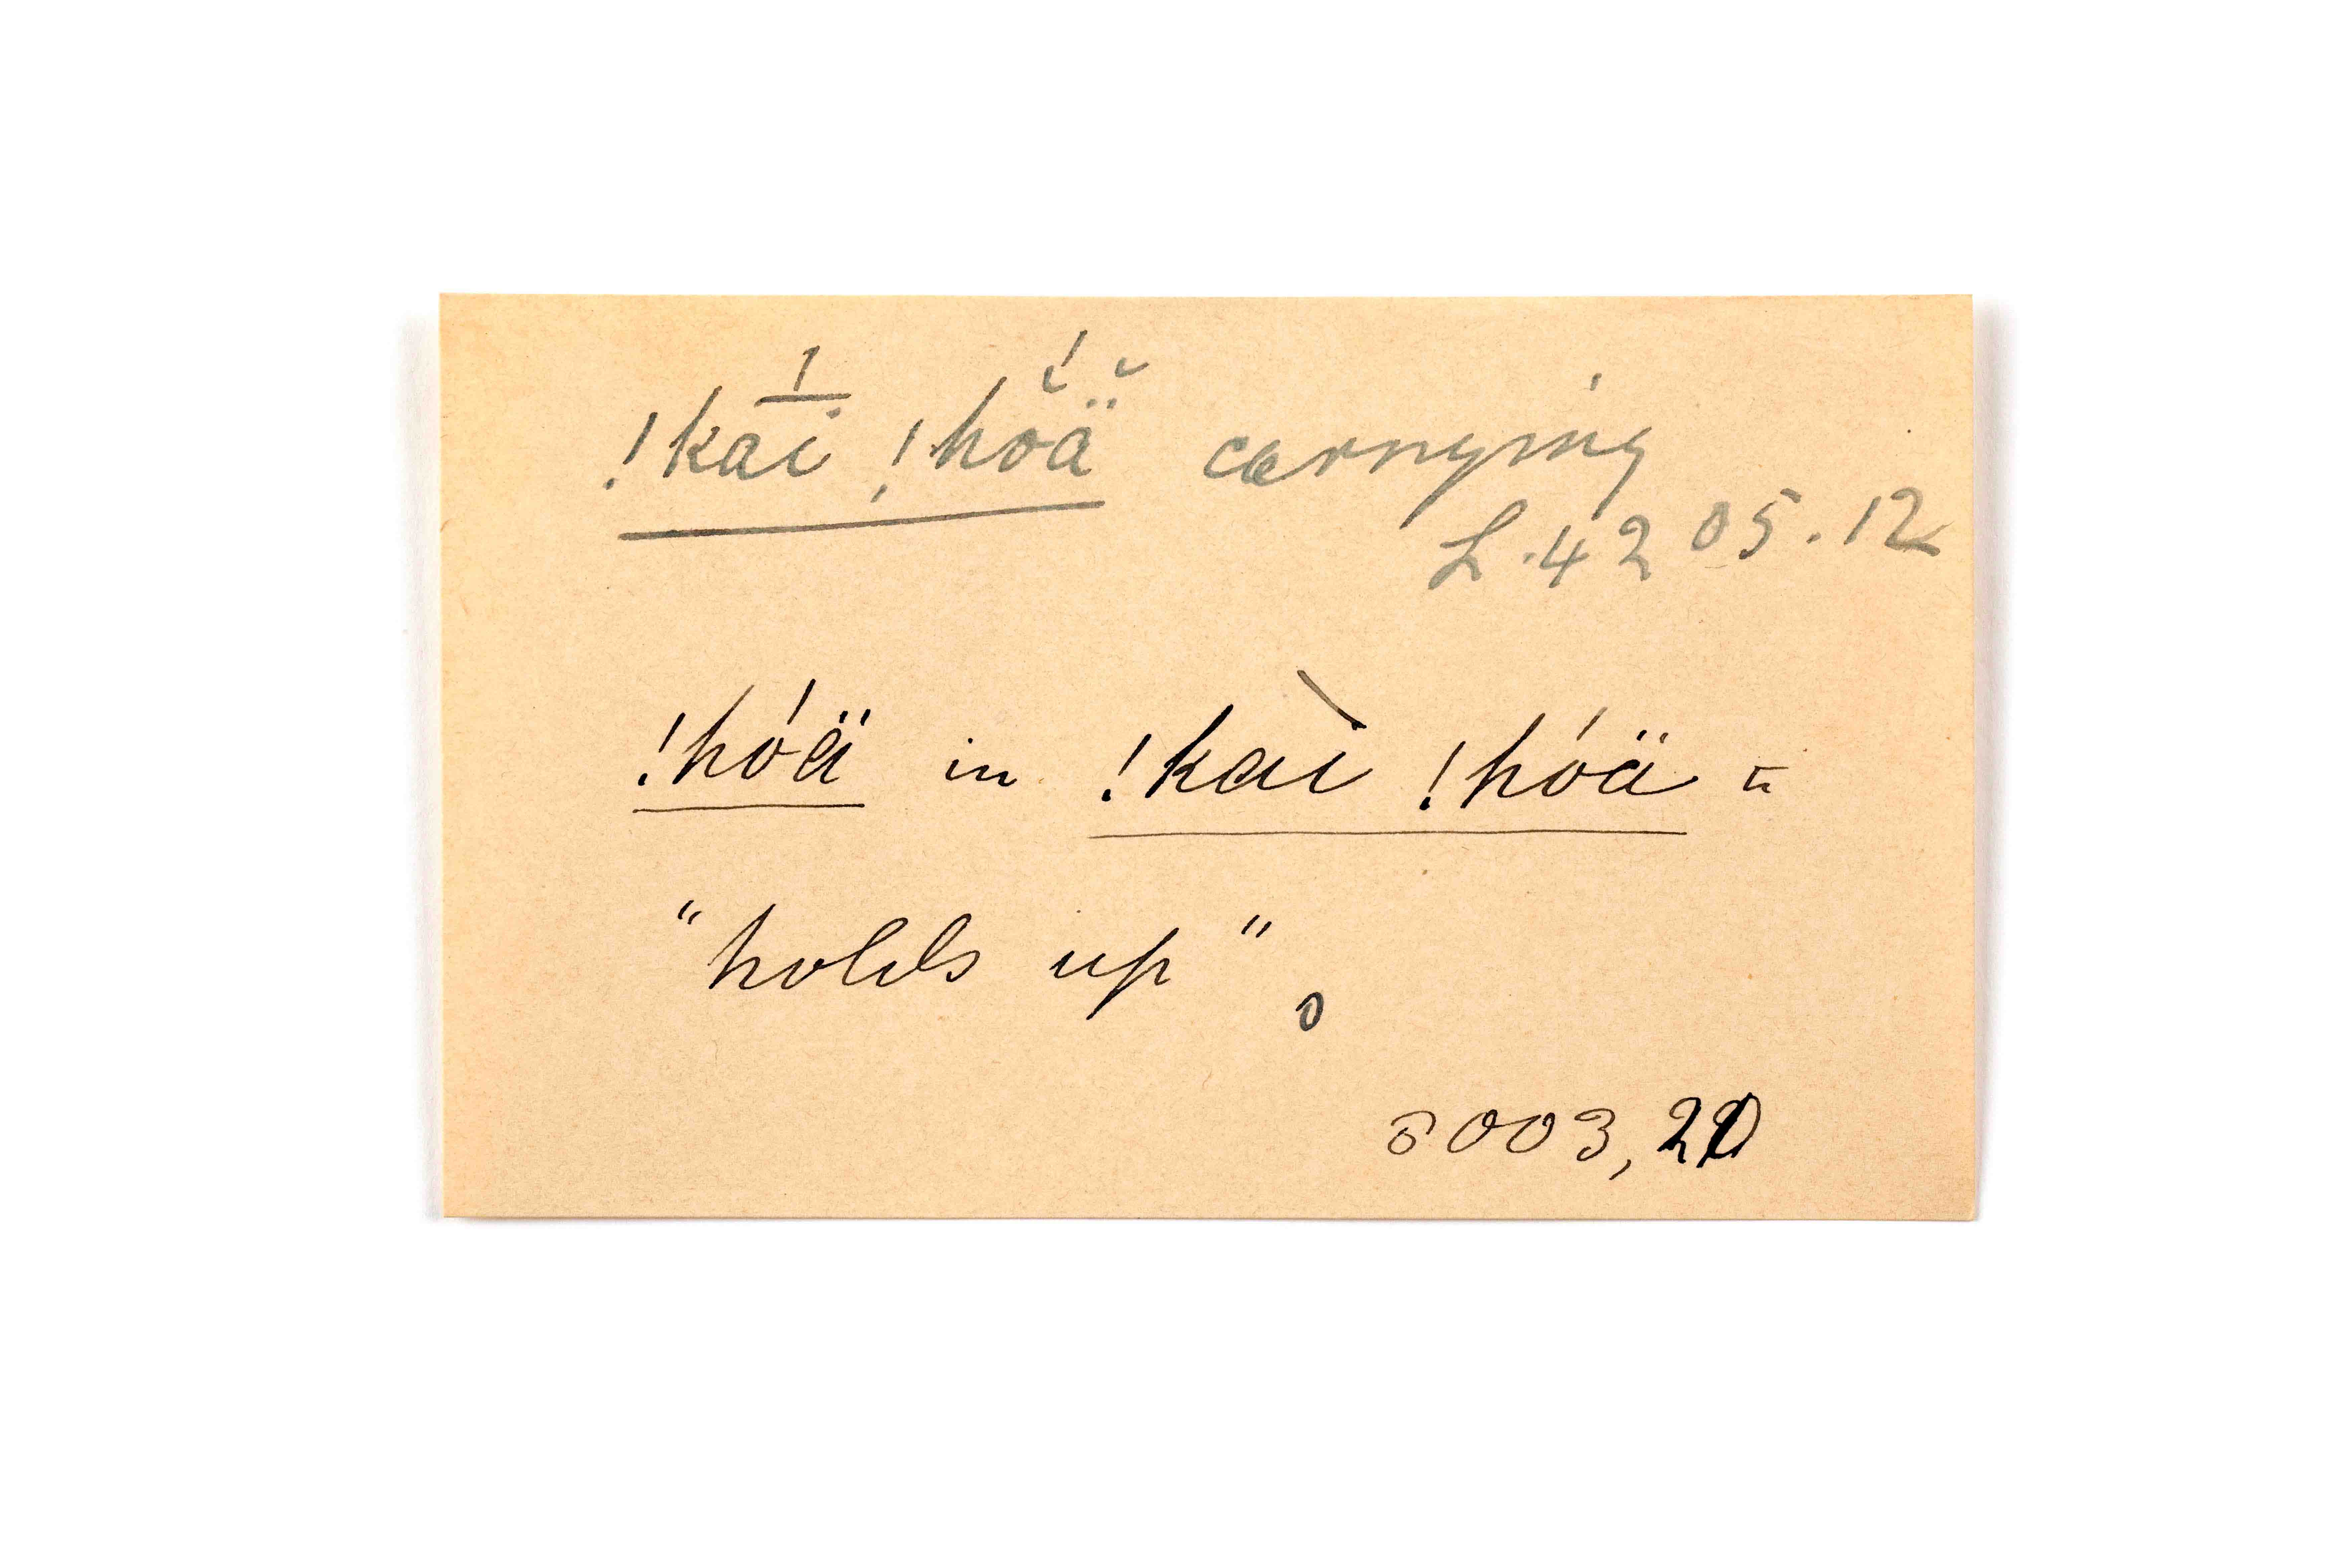 !kaí̄ !hŏ́ä̆ carrying
L.4205.12
!hóä in !kaì !hóä =
"holds up".
8003,21